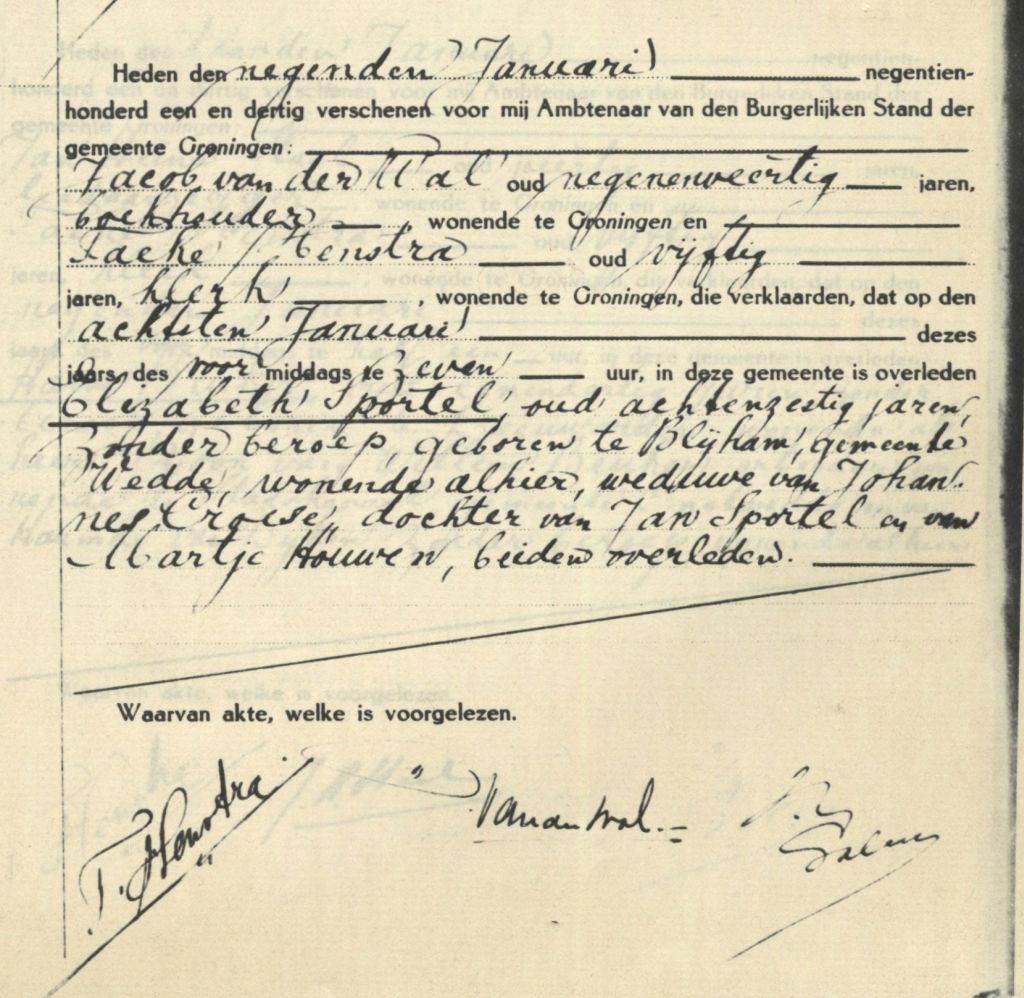 Heden den negenden Januari negentien-
honderd een en dertig verschenen voor mij Ambtenaar van den Burgerlijken Stand der
gemeente Groningen:
Jacob van der Wal oud negenenveertig jaren,
boekhouder, wonende te Groningen en
Taeke Henstra oud vijftig
jaren, klerk, wonende te Groningen, die verklaarden, dat op den
achtsten Januari dezes
jaars des voor middags te zeven uur, in deze gemeente is overleden
Elizabeth Sportel, oud achtenzestig jaren,
zonder beroep, geboren te Blijham, gemeente
Wedde, wonende alhier, weduwe van Johan-
nes Croese, dochter van Jan Sportel en van
Martje Houwen, beiden overleden.
Waarvan akte, welke is voorgelezen.
T. Henstra